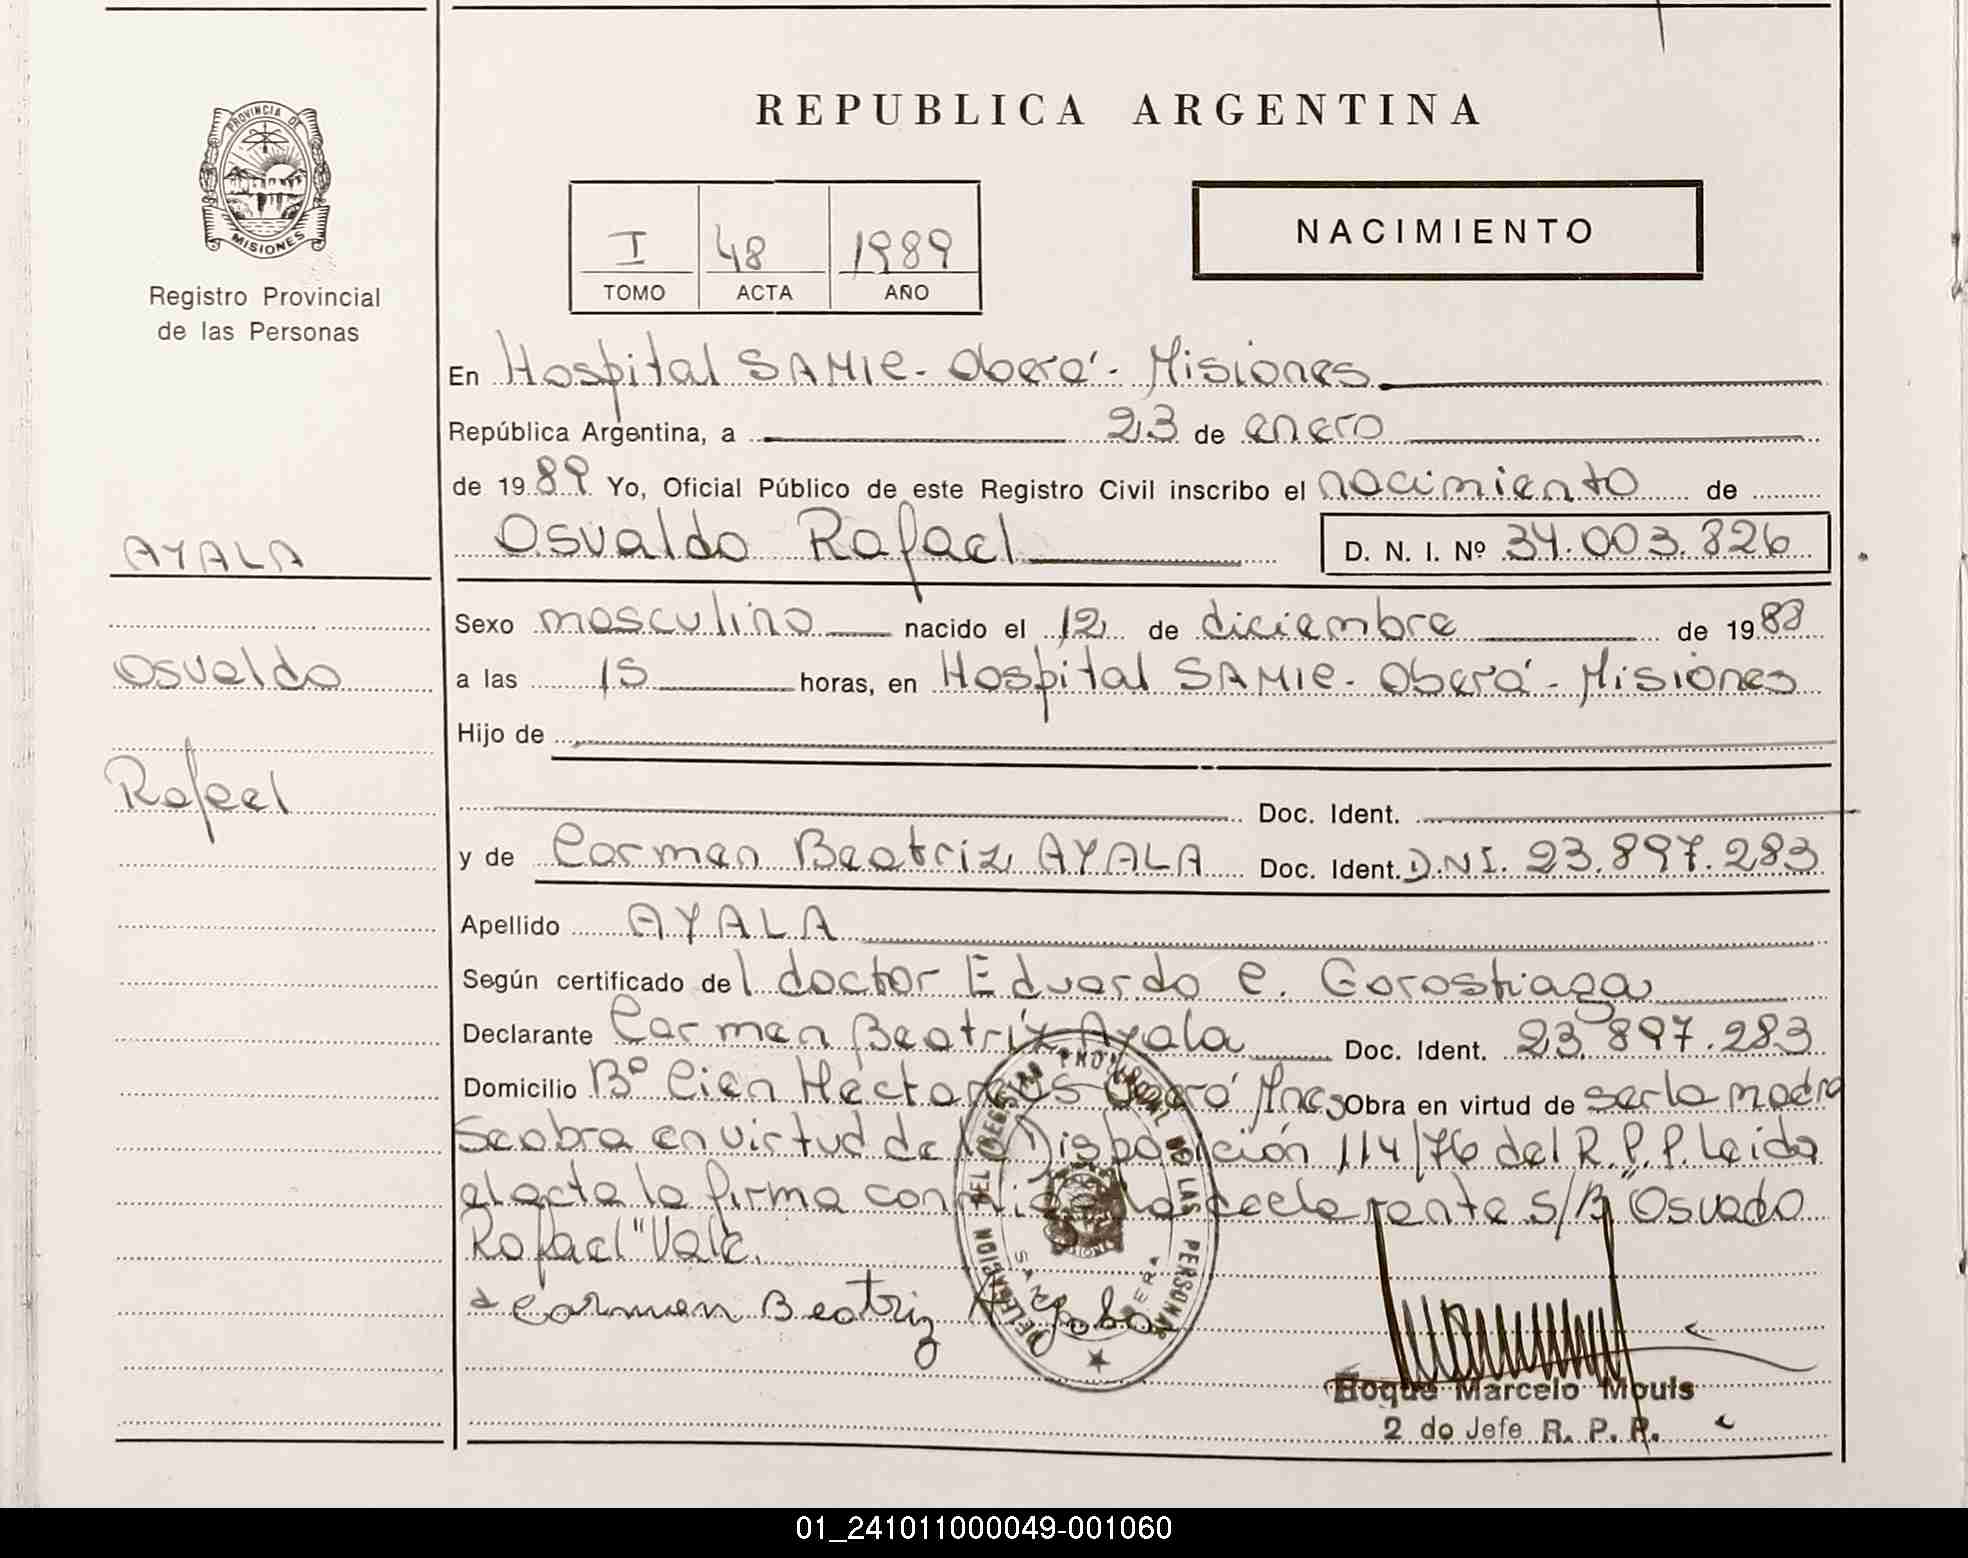 REPUBLICA ARGENTINA
PROVINCIA DE
MISIONES
Registro Provincial
de las Personas
I 48 1989
TOMO ACTA AÑO
NACIMIENTO
En Hospital SAMIC - Oberá - Misiones
República Argentina, a 23 de enero
de 1989 Yo, Oficial Público de este Registro Civil inscribo el nacimiento de
AYALA
Osvaldo Rafael D. N. I. Nº 34.003.826
Sexo masculino nacido el 12 de diciembre de 1988
Osvaldo
a las 15 horas, en Hospital SAMIC - Oberá - Misiones
Hijo de
Rafael
Doc. Ident.
y de Carmen Beatriz AYALA Doc. Ident. D.N.I. 23.897.283
Apellido AYALA
Según certificado del doctor Eduardo C. Gorostiaga
Declarante Carmen Beatriz Ayala Doc. Ident. 23.897.283
Domicilio Bº Cien Hectareas Oberá Mnes Obra en virtud de ser la madre
Se obra en virtud de la Disposición 114/76 del R.P.P. Leida
el acta la firma conmigo la declarante S/B "Osvado
Rafael" Vale.
Carmen Beatriz Ayala
DELEGACION DEL REGISTRO PROVINCIAL DE LAS PERSONAS
Roque Marcelo Mouis
2 do Jefe R. P. P.
01_241011000049-001060